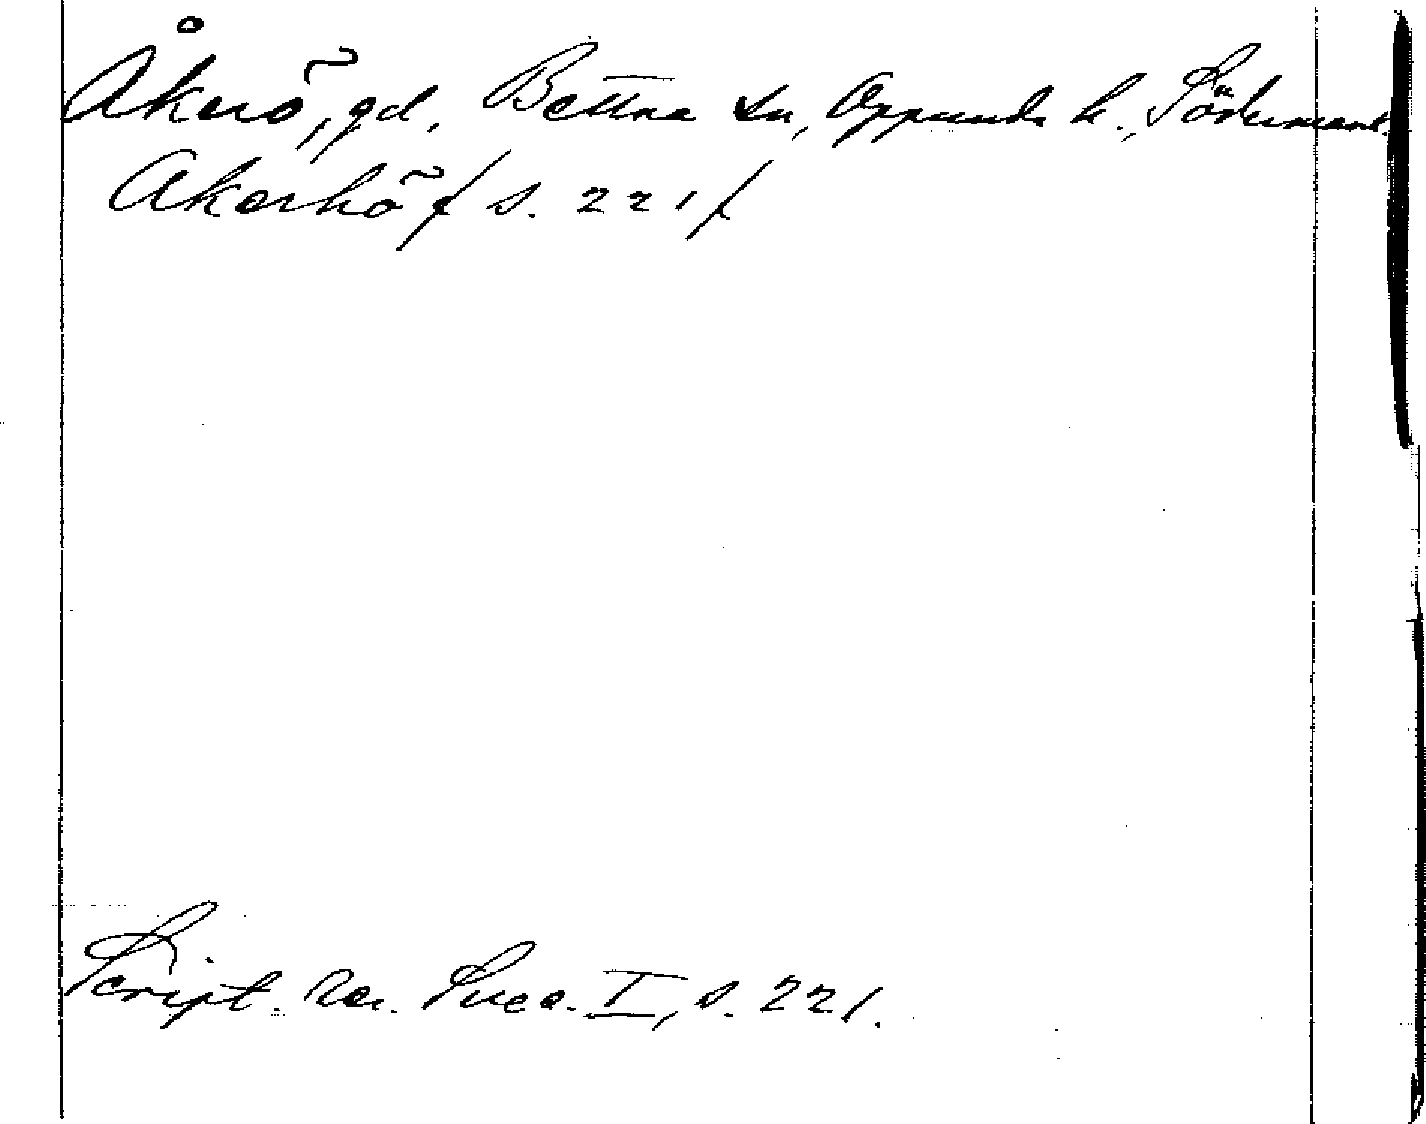 Åkerö, gd, Bettna sn, Oppunda h., Södermanl.
Akerhö / s. 221 /
Script. Rer. Suec. I, s. 221.